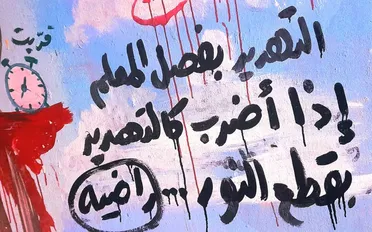 قربت
التهديد بفصل المعلم
إذا أضرب كالتهديد
بقطع النور ... راضية